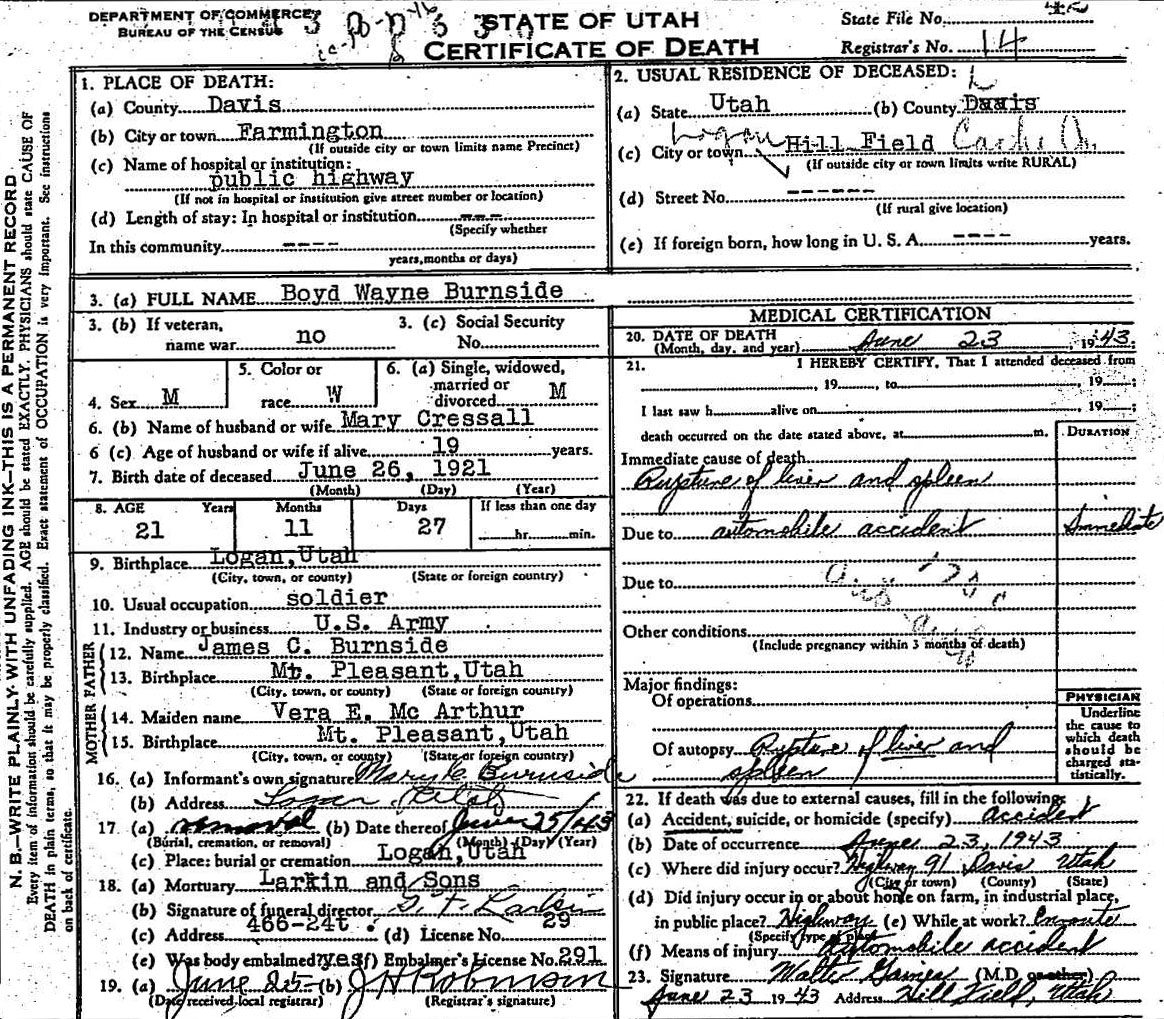 DEPARTMENT OF COMMERCE
BUREAU OF THE CENSUS
STATE OF UTAH
CERTIFICATE OF DEATH
State File No.
Registrar's No. 14
N. B.—WRITE PLAINLY-WITH UNFADING INK—THIS IS A PERMANENT RECORD
Every item of information should be carefully supplied. AGE should be stated EXACTLY. PHYSICIANS should state CAUSE OF
DEATH in plain terms, so that it may be properly classified. Exact statement of OCCUPATION is very important. See instructions
on back of certificate.
1. PLACE OF DEATH:
(a) County Davis
(b) City or town Farmington
(If outside city or town limits name Precinct)
(c) Name of hospital or institution:
public highway
(If not in hospital or institution give street number or location)
(d) Length of stay: In hospital or institution ---
(Specify whether
In this community ----
years, months or days)
2. USUAL RESIDENCE OF DECEASED:
(a) State Utah (b) County Davis
Logan Hill Field Cache
(c) City or town
(If outside city or town limits write RURAL)
(d) Street No. ------
(If rural give location)
(e) If foreign born, how long in U. S. A. ---- years.
3. (a) FULL NAME Boyd Wayne Burnside
3. (b) If veteran, name war no
3. (c) Social Security No.
4. Sex M
5. Color or race W
6. (a) Single, widowed, married or divorced M
6. (b) Name of husband or wife Mary Cressall
6 (c) Age of husband or wife if alive 19 years.
7. Birth date of deceased June 26, 1921
(Month) (Day) (Year)
8. AGE Years Months Days If less than one day
21 11 27 hr. min.
9. Birthplace Logan, Utah
(City, town, or county) (State or foreign country)
10. Usual occupation soldier
11. Industry or business U.S. Army
FATHER
12. Name James C. Burnside
13. Birthplace Mt. Pleasant, Utah
(City, town, or county) (State or foreign country)
MOTHER
14. Maiden name Vera E. Mc Arthur
15. Birthplace Mt. Pleasant, Utah
(City, town, or county) (State or foreign country)
16. (a) Informant's own signature Mary C Burnside
(b) Address Logan Utah
17. (a) removal (b) Date thereof June 25/43
(Burial, cremation, or removal) (Month) (Day) (Year)
(c) Place: burial or cremation Logan, Utah
18. (a) Mortuary Larkin and Sons
(b) Signature of funeral director Larkin
(c) Address 466-24t. (d) License No. 29
(e) Was body embalmed? yes (f) Embalmer's License No. 291
19. (a) June 25- (b) J H Robinson
(Date received local registrar) (Registrar's signature)
MEDICAL CERTIFICATION
20. DATE OF DEATH
(Month, day, and year) June 23 1943.
21. I HEREBY CERTIFY, That I attended deceased from
, 19 , to , 19 ;
I last saw h alive on , 19 ;
death occurred on the date stated above, at m.
DURATION
Immediate cause of death
Rupture of liver and spleen
Due to automobile accident Immediate
Due to
Other conditions
(Include pregnancy within 3 months of death)
Major findings:
Of operations
Of autopsy Rupture of liver and
spleen
PHYSICIAN
Underline
the cause to
which death
should be
charged sta-
tistically.
22. If death was due to external causes, fill in the following:
(a) Accident, suicide, or homicide (specify) accident
(b) Date of occurrence June 23, 1943
(c) Where did injury occur? Highway 91 Davis Utah
(City or town) (County) (State)
(d) Did injury occur in or about home on farm, in industrial place,
in public place? Highway (e) While at work? Enroute
(Specify type of place)
(f) Means of injury automobile accident
23. Signature Walter (M.D. or other)
June 23 1943 Address Hill Field, Utah